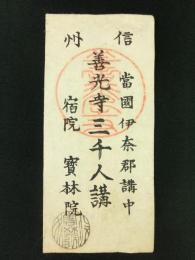 信州
當國伊奈郡講中
善光寺三千人講
宿院 寶林院